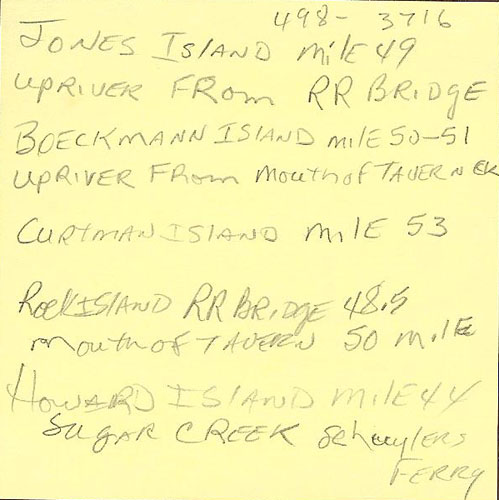 498- 3716
JONES ISLAND MILE 49
UPRIVER FROM RR BRIDGE
BOECKMANN ISLAND MILE 50-51
UPRIVER FROM MOUTH OF TAVERN CK
CURTMAN ISLAND MILE 53
ROCK ISLAND RR BRIDGE 48.5
MOUTH OF TAVERN 50 MILE
HOWARD ISLAND MILE 44
SUGAR CREEK SCHUYLERS
FERRY